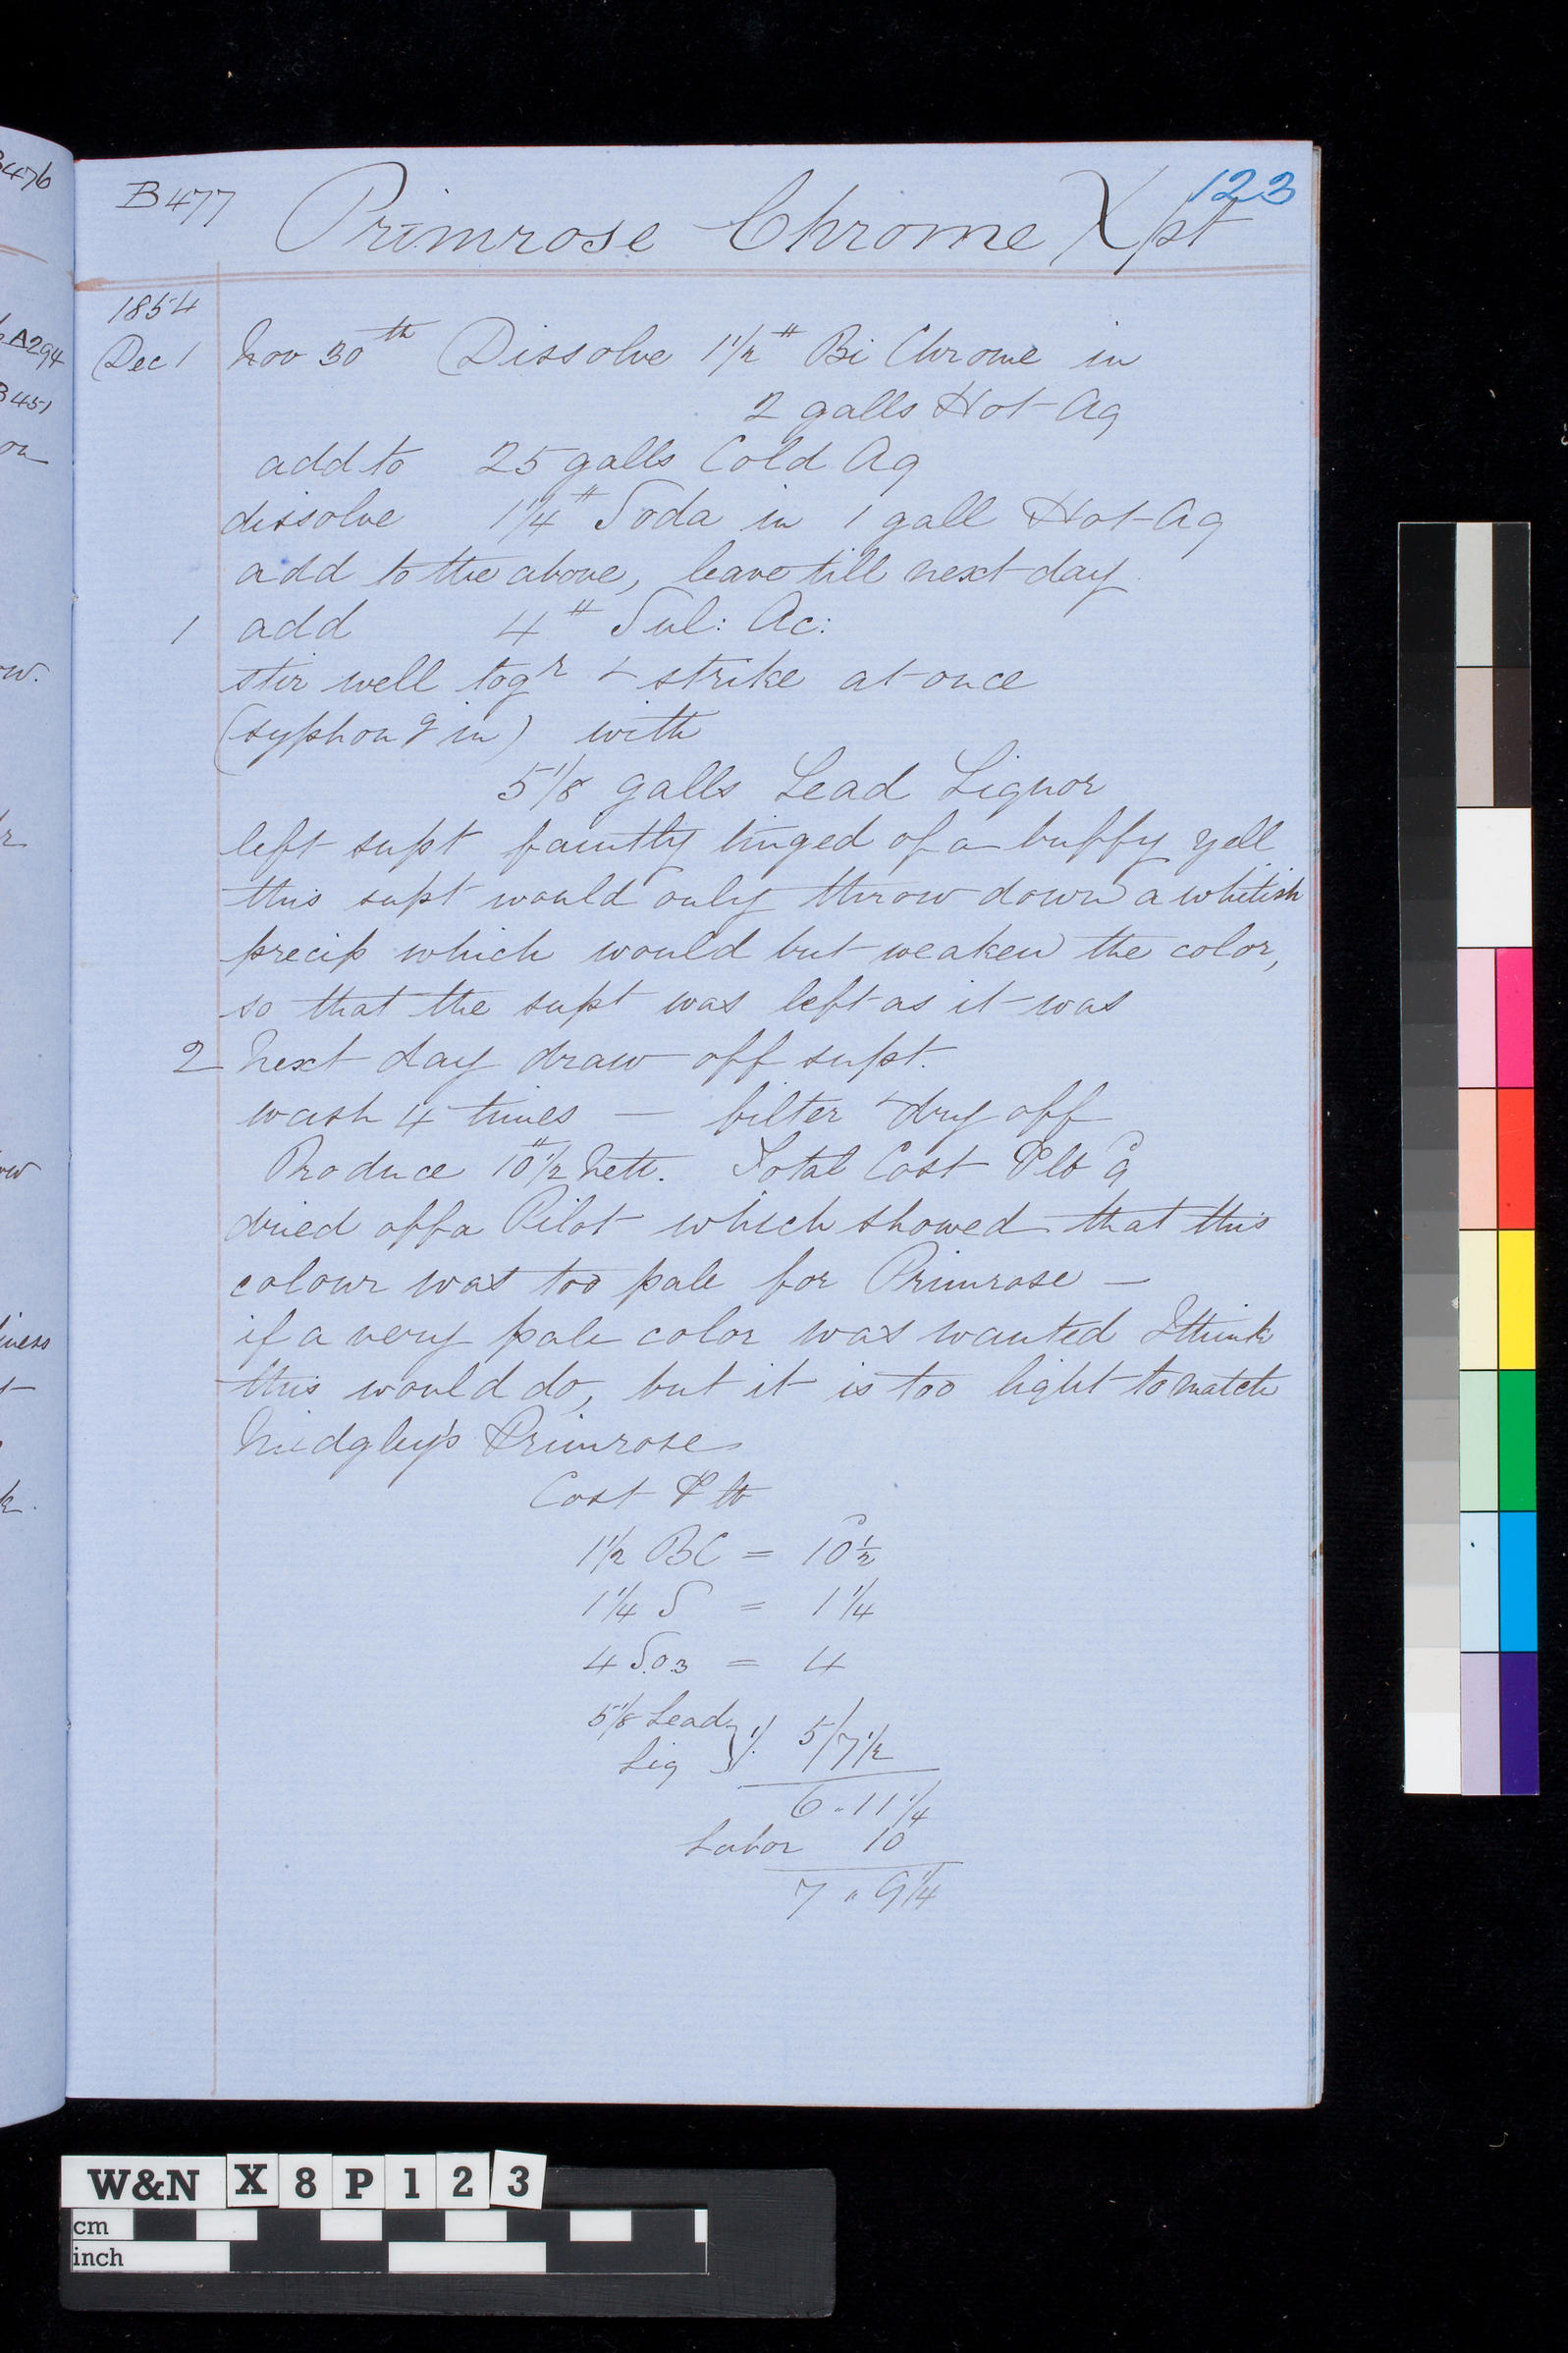 B476
A294
B451
on
w.
r
ow
iness
k.
B477
123
Primrose Chrome Xpt
1854
Dec 1 Nov 30th Dissolve 1 1/2 # Bi Chrome in
2 galls Hot Aq
add to 25 galls Cold Aq
dissolve 1 1/4 # Soda in 1 gall Hot Aq
add to the above, leave till next day.
1 add 4 # Sul: Ac:
stir well togr & strike at once
(syphong in) with
5 1/8 galls Lead Liquor
left supt faintly tinged of a buffy yell
this supt would only throw down a whitish
precip which would but weaken the color,
so that the supt was left as it was
2 Next day draw off supt.
wash 4 times — filter & dry off
Produce 10 1/2 # nett. Total Cost ⅌ lb 9d
dried off a Pilot which showed that this
colour was too pale for Primrose —
if a very pale color was wanted I think
this would do, but it is too light to match
Midgley's Primrose
Cost ⅌ lb
1 1/2 BC = 10 1/2 d
1 1/4 S = 1 1/4
4 S.O3 = 4
5 1/8 Lead
Liq } 1/. 5/7 1/2
6 " 11 1/4
Labor 10
7 " 9 1/4
W&N X 8 P 1 2 3
cm
inch